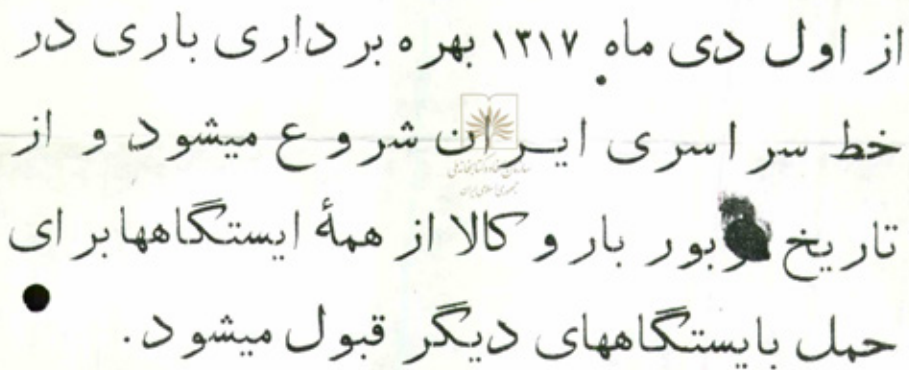 از اول دی ماه ۱۳۱۷ بهره برداری باری در
خط سراسری ایران شروع میشود و از
تاریخ مزبور بار و کالا از همهٔ ایستگاهها برای
حمل بایستگاههای دیگر قبول میشود.